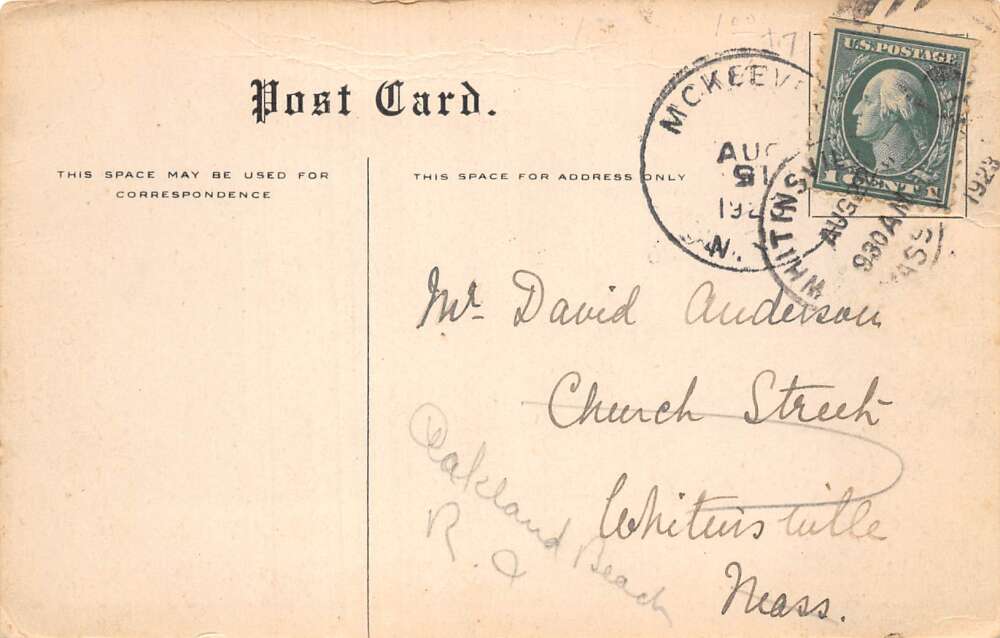 Post Card.
THIS SPACE MAY BE USED FOR
CORRESPONDENCE
THIS SPACE FOR ADDRESS ONLY
MCKEEV
AUG
N.Y.
U.S. POSTAGE
1 CENT 1
WHITINSVILLE
AUG
930 AM
1923
MASS
Mr. David Anderson
Church Street
Whitinsville
Mass.
Oakland Beach
R. I